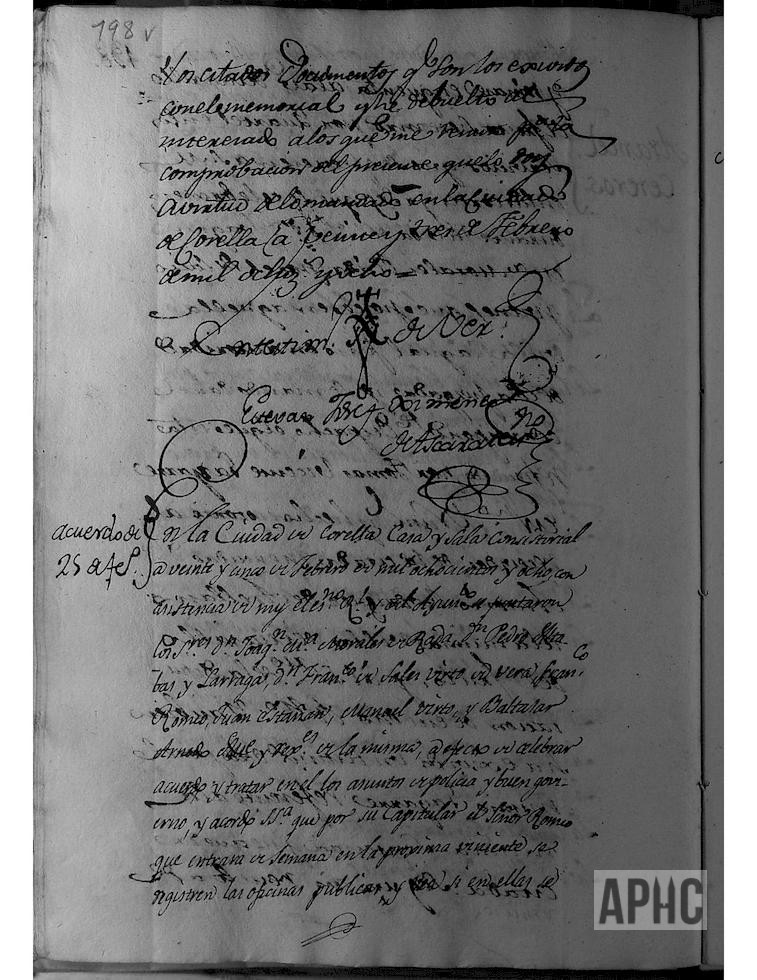 198 v
Los citados Documentos q.e son los exividos
con el memorial y he debuelto al
interesado a los que me remito para la
comprobacion del presente que lo doy
a virtud de lo mandado en la Ciudad
de Corella a veinte y tres de Febrero
de mil ochoz.s y ocho =
En testim.o de Ver.
Cuevas Ximenez
de Ascarate
acuerdo de
25 de feb.
En la Ciudad de Corella Casa y Sala Consistorial
a veinte y cinco de Febrero de mil ochocientos y ocho, con
asistencia de my el es.no R.l y del Ayun.to se juntaron
los S.res d.n Joaq.n M.a Morales de Rada, D.n Pedro Alta
bas y Larraga, D.n Fran.co de Sales virto de vera, Fran.co
Romeo, Juan Estañan, Manuel virto, y Baltasar
Arnedo Alc.e y rex.es de la misma, a efecto de celebrar
acuerdo y tratar en el los asuntos de policia y buen govi-
erno, y acordo SS.a que por su Capitular el Señor Romeo
que entrara de semana en la proxima viniente se
registren las oficinas publicas y vea si en ellas se
APHC